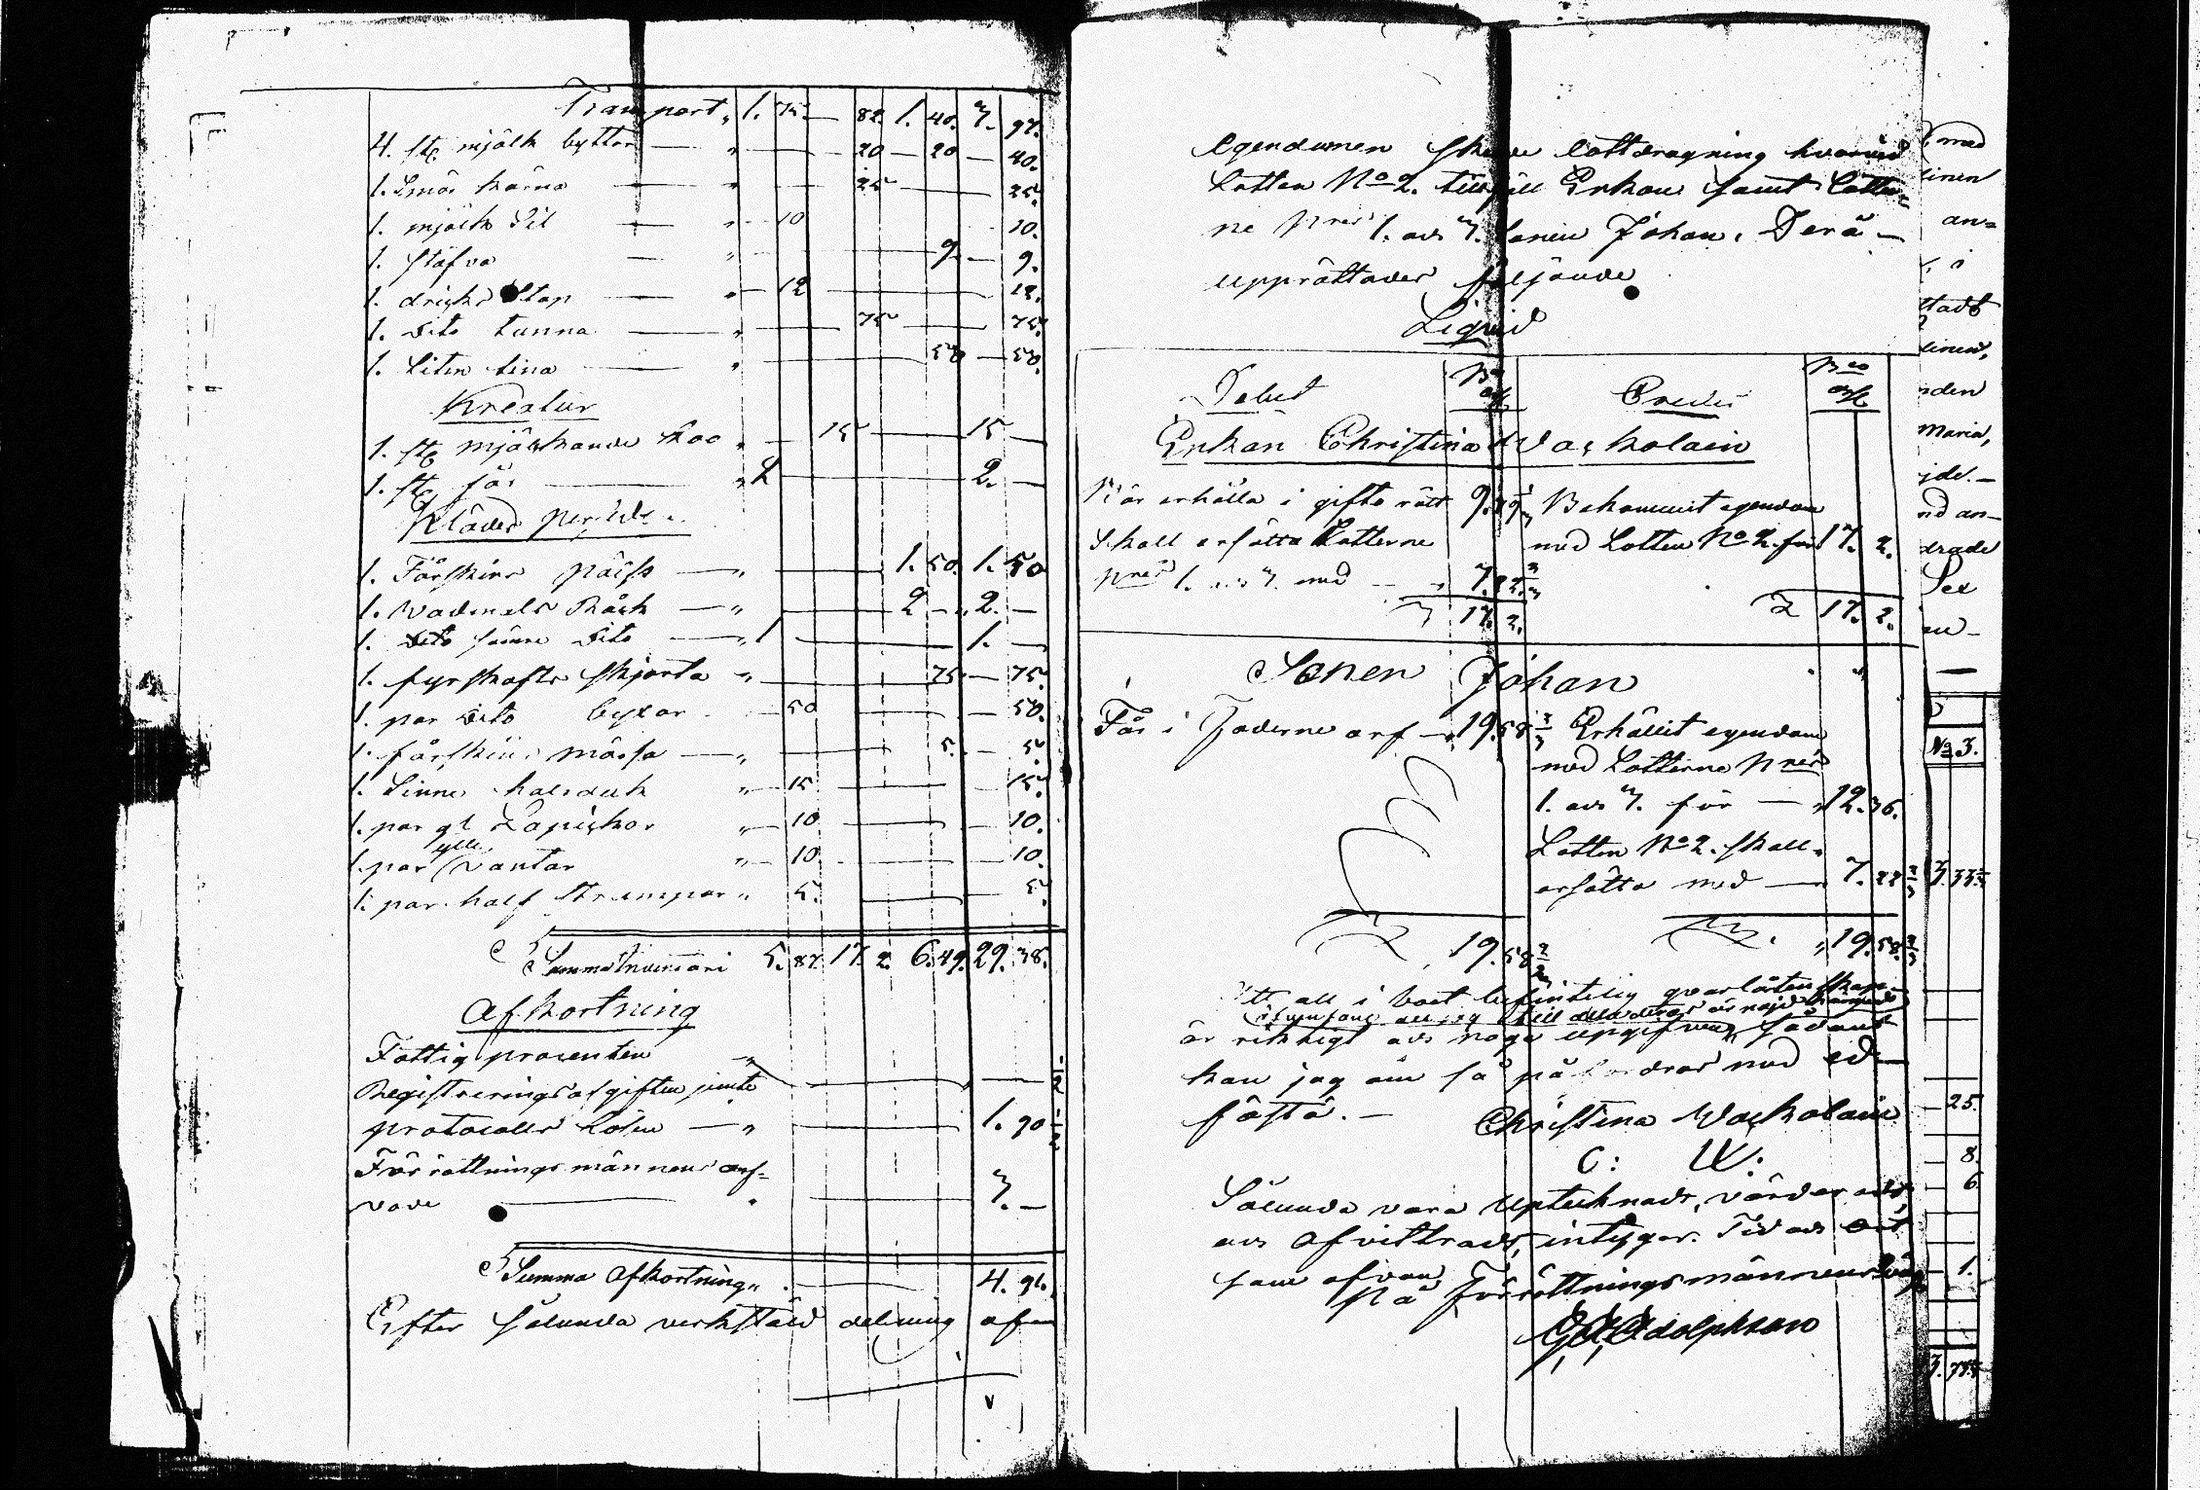 Transport „ 1. 75. — 82. 1. 40. 3. 97.
4. st. mjölk byttor — „ — 20 — 20 — 40.
1. Smör kärna — „ — 25 — 25.
1. mjölk Sil — „ 10 — 10.
1. stäfva — „ — 9. — 9.
1. dricks Stop — „ 12 — 12.
1. Dito tunna — „ — 75 — 75.
1. Liten tina — „ — 50 — 50.
Kreatur
1. st. mjölkande Koo „ — 15 — 15 —
1. st. får — „ 2 — 2. —
Kläder
1. Fårskins päls — „ — 1. 50. 1. 50
1. Vadmals Råck — „ — 2 — „ 2. —
1. Dito sämre Dito — „ 1 — 1. —
1. fyrskafts skjorta — „ — 75. — 75.
1. par Dito byxor 50 — 50.
1. fårskins mössa — „ — 5. — 5.
1. Linne halsduk „ 15 — 15.
1. par gl Lapiskor „ 10 — 10.
1. par ylle vantar „ 10 — 10.
1. par half strumpor „ 5. — 5.
Summa Inventarii 5. 87. 17. 2. 6. 49. 29. 38.
Afkortning
Fattig procenten „
Registreringsafgiften jemte
protocolls Lösen — „ — 1. 90
Förrättnings männens arf-
vode — „ — 3. —
Summa Afkortning „ — 4. 94.
Efter sålunda verkstäld delning af
Egendomen skedde lottdragning hvarvid
Lotten No 2. tillföll Enkan samt Lotter-
ne Nres 1. och 3. Sonen Johan. Derå —
upprättades följande
Liqvid
Debet Bco Credit Bco
Enkan Christina Waskolain
Bör erhålla i gifto rätt 9. Bekommit egendom
Skall ersätta Lotterne med Lotten No 2. för 17. 2.
Nres 1. och 3. med — „ 7.
17. 2. 17. 2.
Sonen Johan
Får i Faderne arf — „ 19. 58 2/3 Erhållit egendom
med Lotterne Nres
1. och 3. för — „ 12. 36.
Lotten No 2. skall
ersätta med — 7. 22 2/3
19. 58 2/3 „ 19. 58 2/3
Att all i boet befintelig qvarlåtenskap
är riktigt och noga uppgifven, sådant
kan jag om så påfordras med ed
fästa. — Christina Waskolain
C: W:
Sålunda vara uptecknadt, värderadt,
och afvittradt, intygar. Tid och ort
som ofvan
På Förrättningsmännens väg
Adolphson
med
linen
an-
i
stadt
linen,
nden
Maria,
jde. —
nd an-
drade
Sex
No 3.
25.
8.
6.
1.